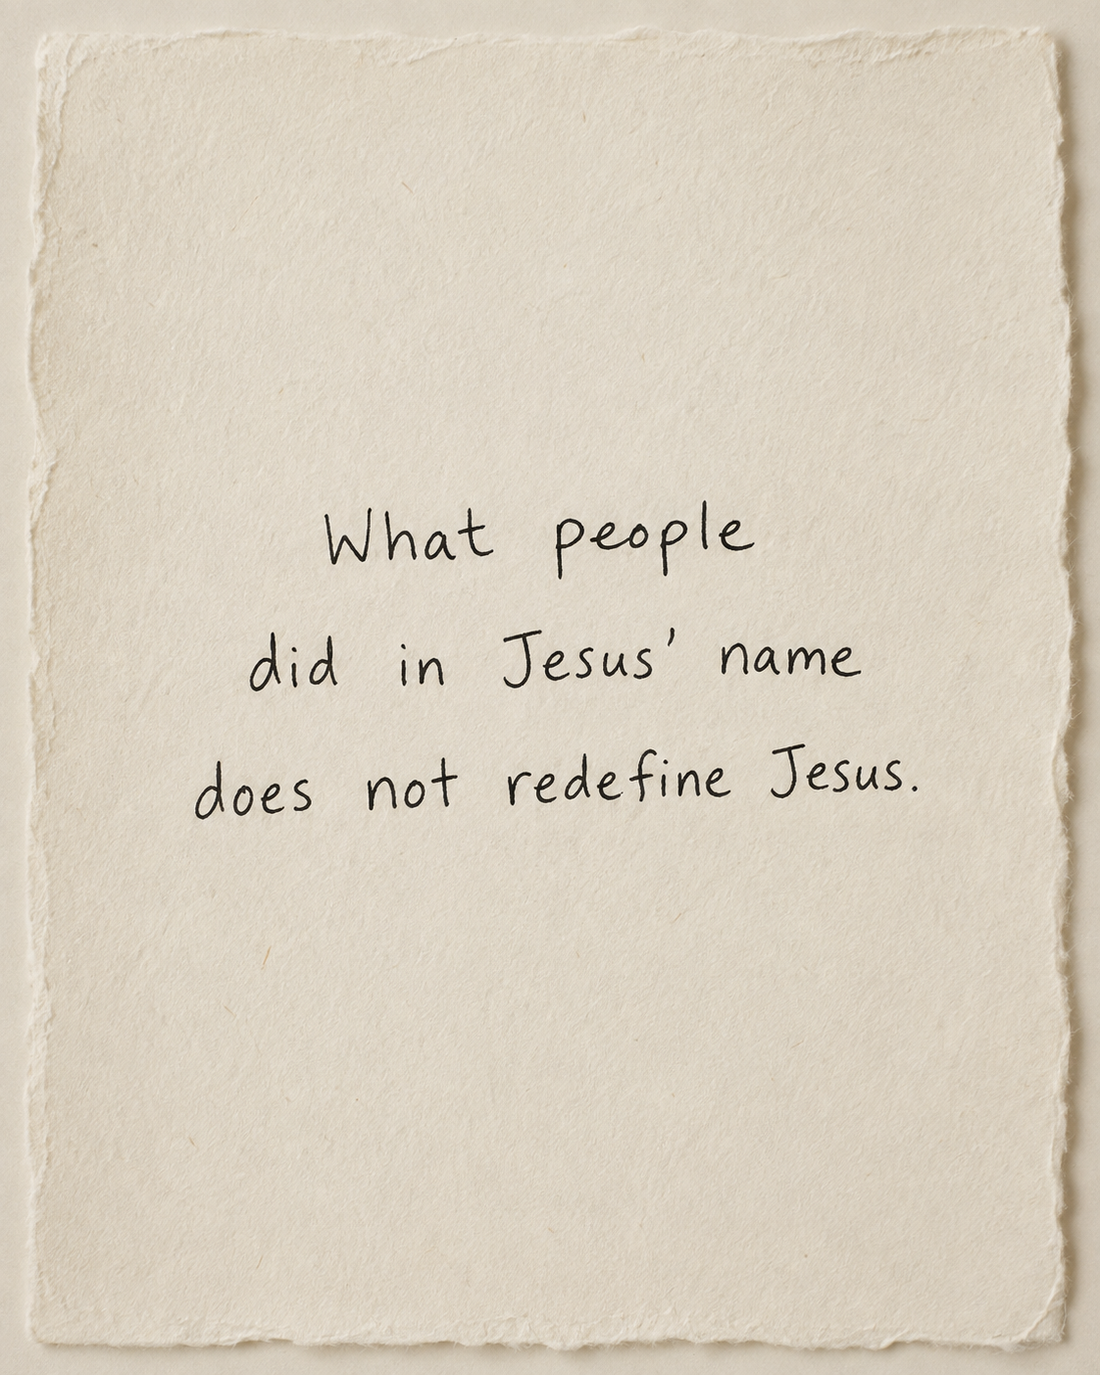 What people
did in Jesus' name
does not redefine Jesus.